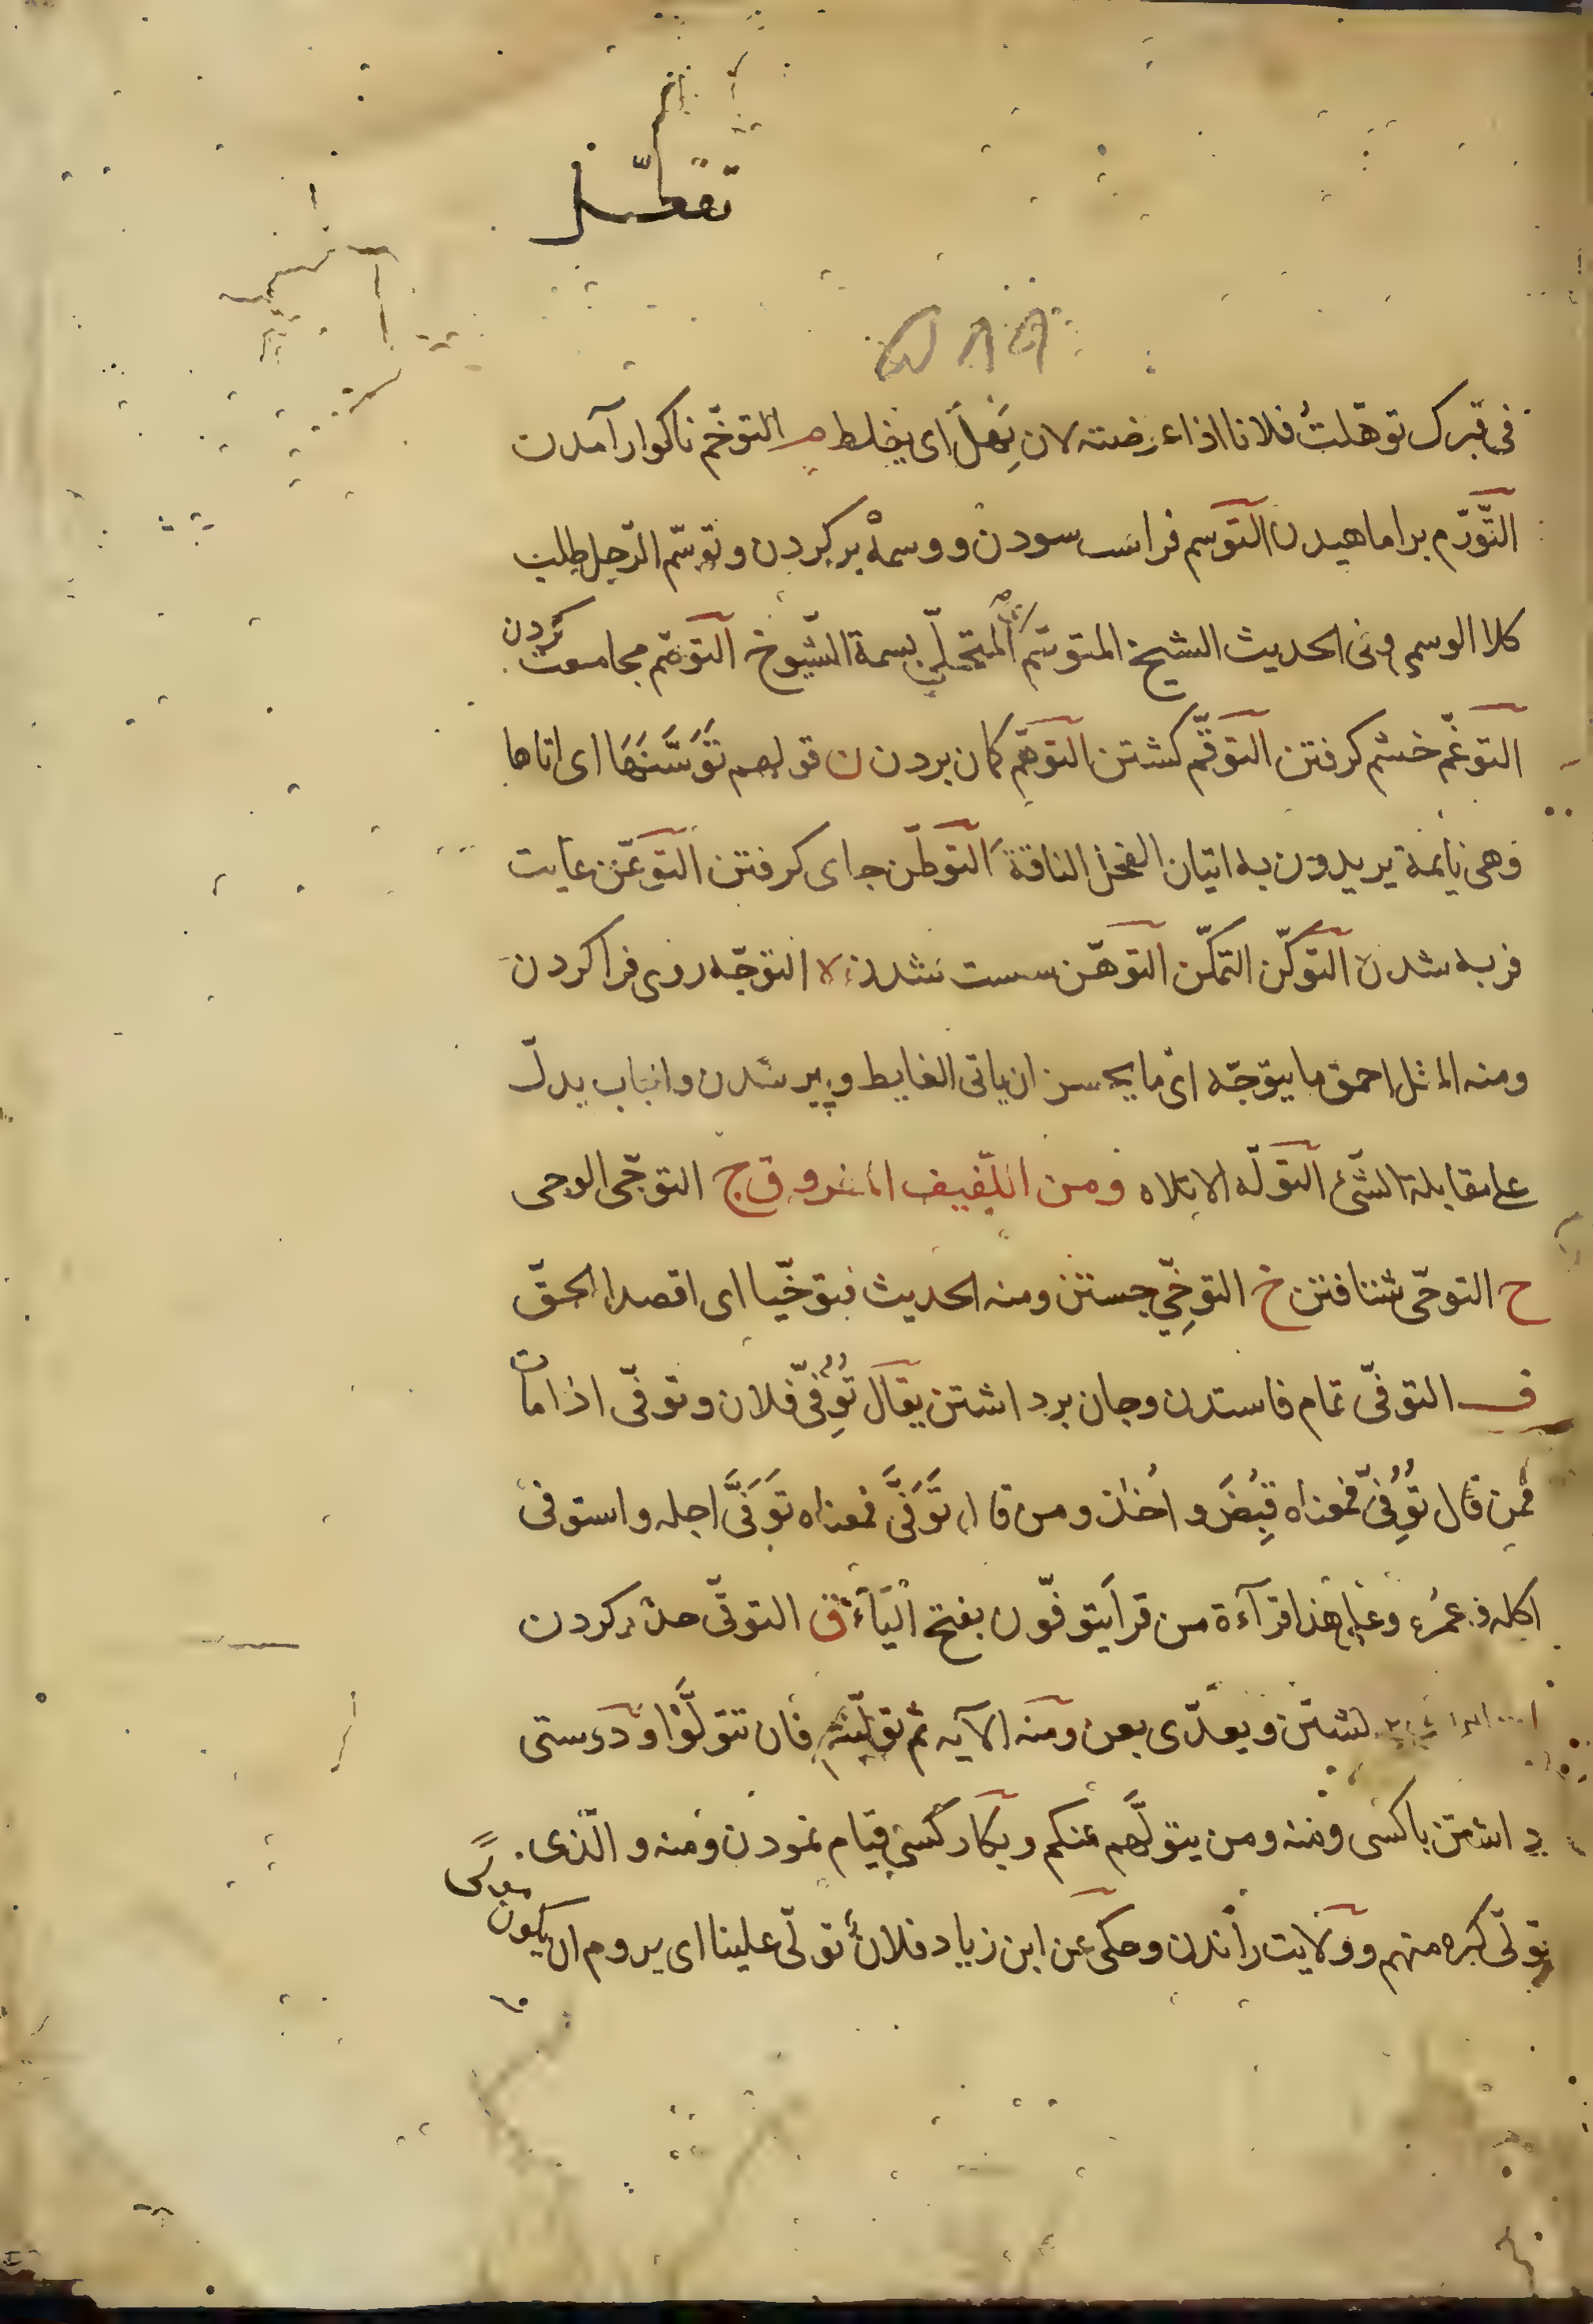 تفعّل
في قبرك توهّلتُ فلانا اذا عرضته لان يَهِلَ اى يغلط م التوخّم ناكوار آمدن
التّورّم براماهيدن التوسم فراست سودن و وسمهْ بر كردن وتوسّم الرّجل طلب
كلا الوسمى وفى الحديث الشيخ المتوسّم المتحلّى بسمة الشّيوخ التوهّم مجامعت كردن
التوغّم خشم كرفتن التوقّم كشتن التوهّم كمان بردن ن قولهم تَوَسَّنَهَا اى اتاها
وهى نايمة يريدون به اتيان الفحل الناقة التوطّن جاى كرفتن التوعّن غايت
فربه شدن التوكّن التمكّن التوهّن سست شدن ه التوجّه روى فرا كردن
ومنه المثل احمق ما يتوجّه اى ما يحسن ان ياتى الغايط و پير شدن و انباب يدلّ
على مقابلة الشّئ التولّه الاتلاه ومن اللّفيف المفروق ج التوجّى الوجى
ح التوحّى شتافتن خ التوخِّي جستن ومنه الحديث فتوخّيا اى اقصدا الحقّ
ف التوفّى تمام فاستدن وجان برداشتن يقال تُوُفِّىَ فلان وتوفّى اذا مات
فمن قال تُوُفِّىَ فمعناه قُبِضَ و اُخذ ومن قال تَوَفَّى فمعناه تَوَفَّى اجله واستوفى
اكله و عمره وعلى هذا قرآءة من قرا يتوفّون بفتح اليَآء ق التوقّى حذر كردن
كشتن ويعدّى بعن ومنه الآيه ثم توليتم فان تتولَّوْا و دوستى
داشتن با كسى ومنه ومن يتولَّهم منكم و بكار كسى قيام نمودن ومنه والّذى
تولّى كبره منهم و ولايت راندن وحكى عن ابن زياد فلانٌ تولّى علينا اى يروم ان يكون